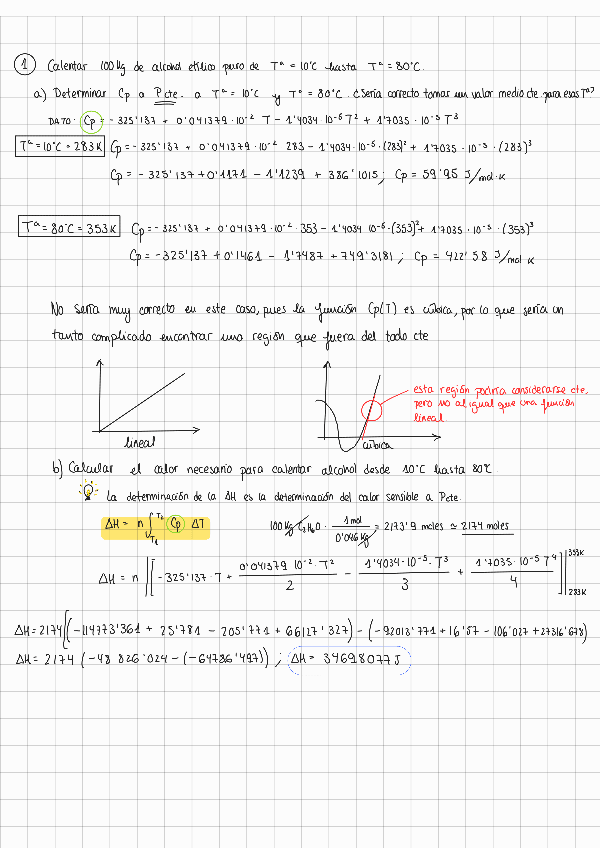 1 Calentar 100 Kg de alcohol etílico puro de Tª = 10°C hasta Tª = 80°C.
a) Determinar Cp a Pcte. a Tª = 10°C y Tª = 80°C. ¿Sería correcto tomar un valor medio cte para esas Tª?
DATO: Cp = - 325'137 + 0'041379 · 10⁻² T - 1'4034 · 10⁻⁵ T² + 1'7035 · 10⁻⁵ T³
Tª = 10°C = 283K Cp = - 325'137 + 0'041379 · 10⁻² 283 - 1'4034 · 10⁻⁵ · (283)² + 1'7035 · 10⁻⁵ · (283)³
Cp = - 325'137 + 0'1171 - 1'1239 + 386'1015 ; Cp = 59'95 J/mol·K
Tª = 80°C = 353K Cp = - 325'137 + 0'041379 · 10⁻² · 353 - 1'4034 10⁻⁵ · (353)² + 1'7035 · 10⁻⁵ · (353)³
Cp = -325'137 + 0'1461 - 1'7487 + 749'3181 ; Cp = 422'58 J/mol·K
No sería muy correcto en este caso, pues la función Cp(T) es cúbica, por lo que sería un
tanto complicado encontrar una región que fuera del todo cte
esta región podría considerarse cte,
pero no al igual que una función
lineal
lineal
cúbica
b) Calcular el calor necesario para calentar alcohol desde 10°C hasta 80°C.
La determinación de la ΔH es la determinación del calor sensible a Pcte.
ΔH = n ∫ T₁ T₂ Cp ΔT 100 Kg C₂H₆O · 1 mol / 0'046 Kg = 2173'9 moles ≃ 2174 moles
ΔH = n [[ -325'137 · T + 0'041379 · 10⁻² · T² / 2 - 1'4034 · 10⁻⁵ · T³ / 3 + 1'7035 · 10⁻⁵ T⁴ / 4 ]] 353K 283K
ΔH = 2174 [(-114773'361 + 25'781 - 205'771 + 66127'327) - (-92013'771 + 16'57 - 106'027 + 27316'678)
ΔH = 2174 (-48 826'024 - (-64786'497)) ; ΔH = 34698077 J